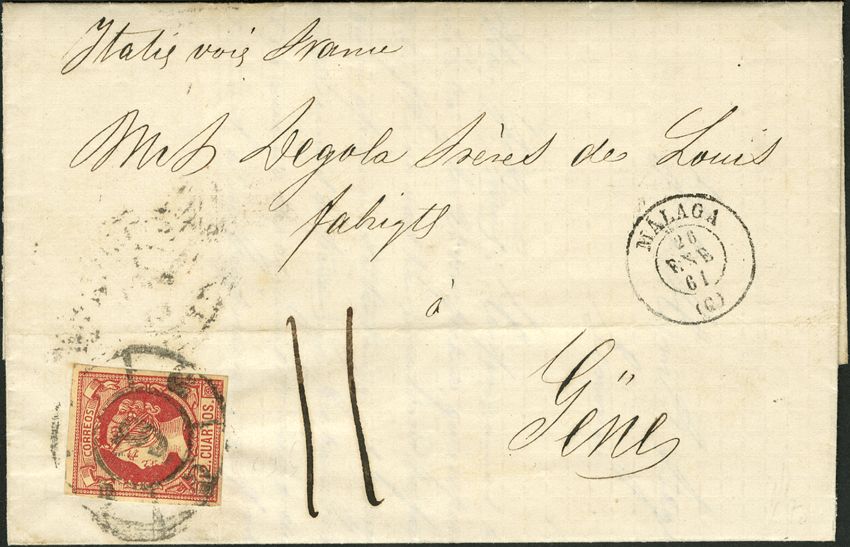 Italie voie France
Mrs Degola Frères de Louis
fabrigts
à
Gêne
MÁLAGA
26
ENE
61
(6)
11
CORREOS
12 CUARTOS.